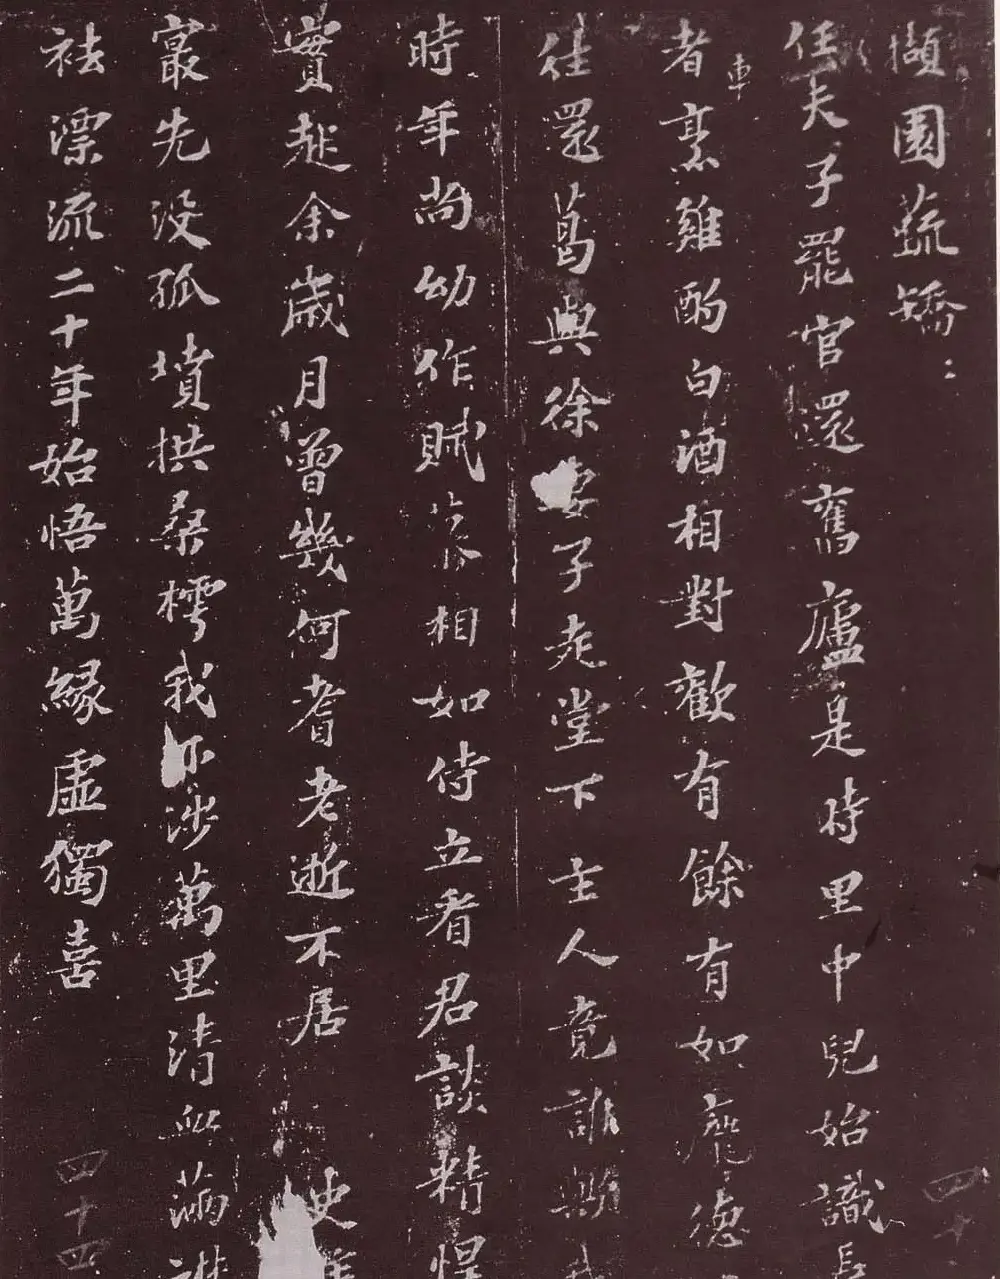 擷園蔬矯::
任夫子罷官還舊廬是時里中兒始識長
者車烹雞酌白酒相對歡有餘有如龐德
往還葛與徐妻子走堂下主人竟誰歟我
時年尚幼作賦慕相如侍立看君談精悍
實起余歲月曾幾何耆老逝不居 史
寂先没孤墳拱桑樗我亦涉萬里清血滿
袪漂流二十年始悟萬緣虛獨喜
四十
四十四